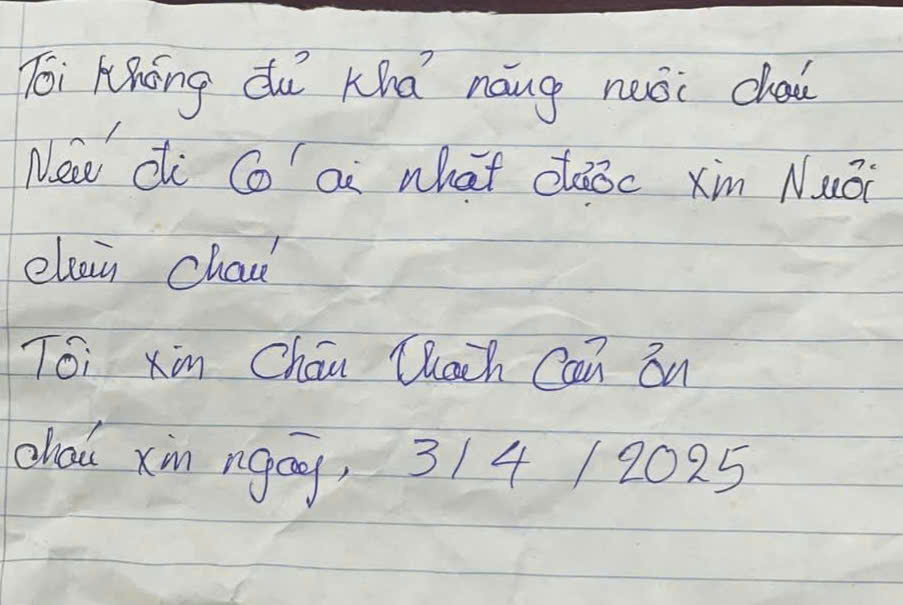 Tôi không đủ khả năng nuôi cháu
Nếu đi có ai nhặt được xin Nuôi
dùm cháu
Tôi xin Chân thành Cản ơn
cháu xin ngày, 3/4/2025